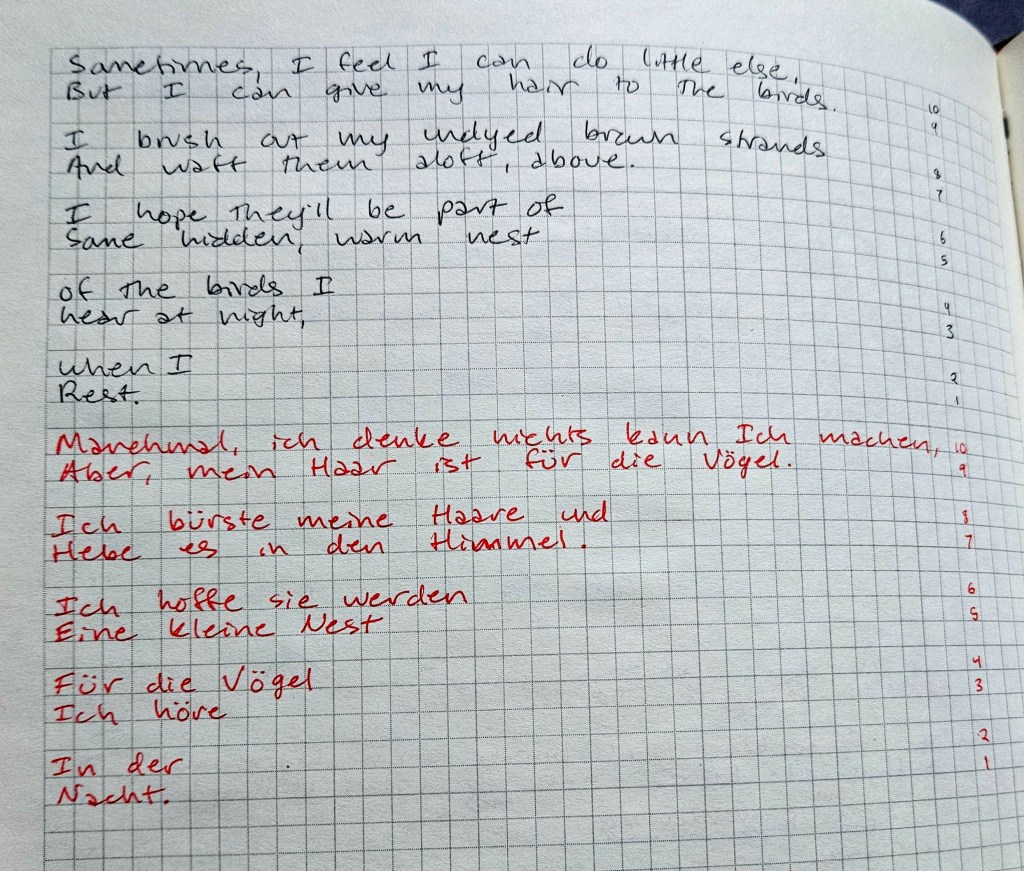 Sometimes, I feel I can do little else, 10
But I can give my hair to the birds. 9
I brush out my undyed brown strands 8
And waft them aloft, above. 7
I hope they'll be part of 6
Some hidden, warm nest 5
of the birds I 4
hear at night, 3
when I 2
Rest. 1
Manchmal, ich denke nichts kann Ich machen, 10
Aber, mein Haar ist für die Vögel. 9
Ich bürste meine Haare und 8
Hebe es in den Himmel. 7
Ich hoffe sie werden 6
Eine kleine Nest 5
Für die Vögel 4
Ich höre 3
In der 2
Nacht. 1